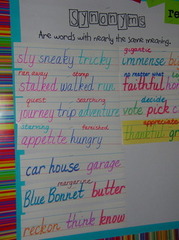 Synonyms
re
Are words with nearly the same meaning.
gigantic
sly sneaky tricky immense bu
ran away stomp no matter what
stalked walked run. faithful hon
guest searching decide
journey trip adventure vote pick c
starving famished appreciate
appetite hungry thankful gr
car house garage.
margerine
Blue Bonnet butter
reckon think know